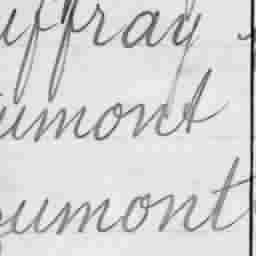 uffray
umont
umont